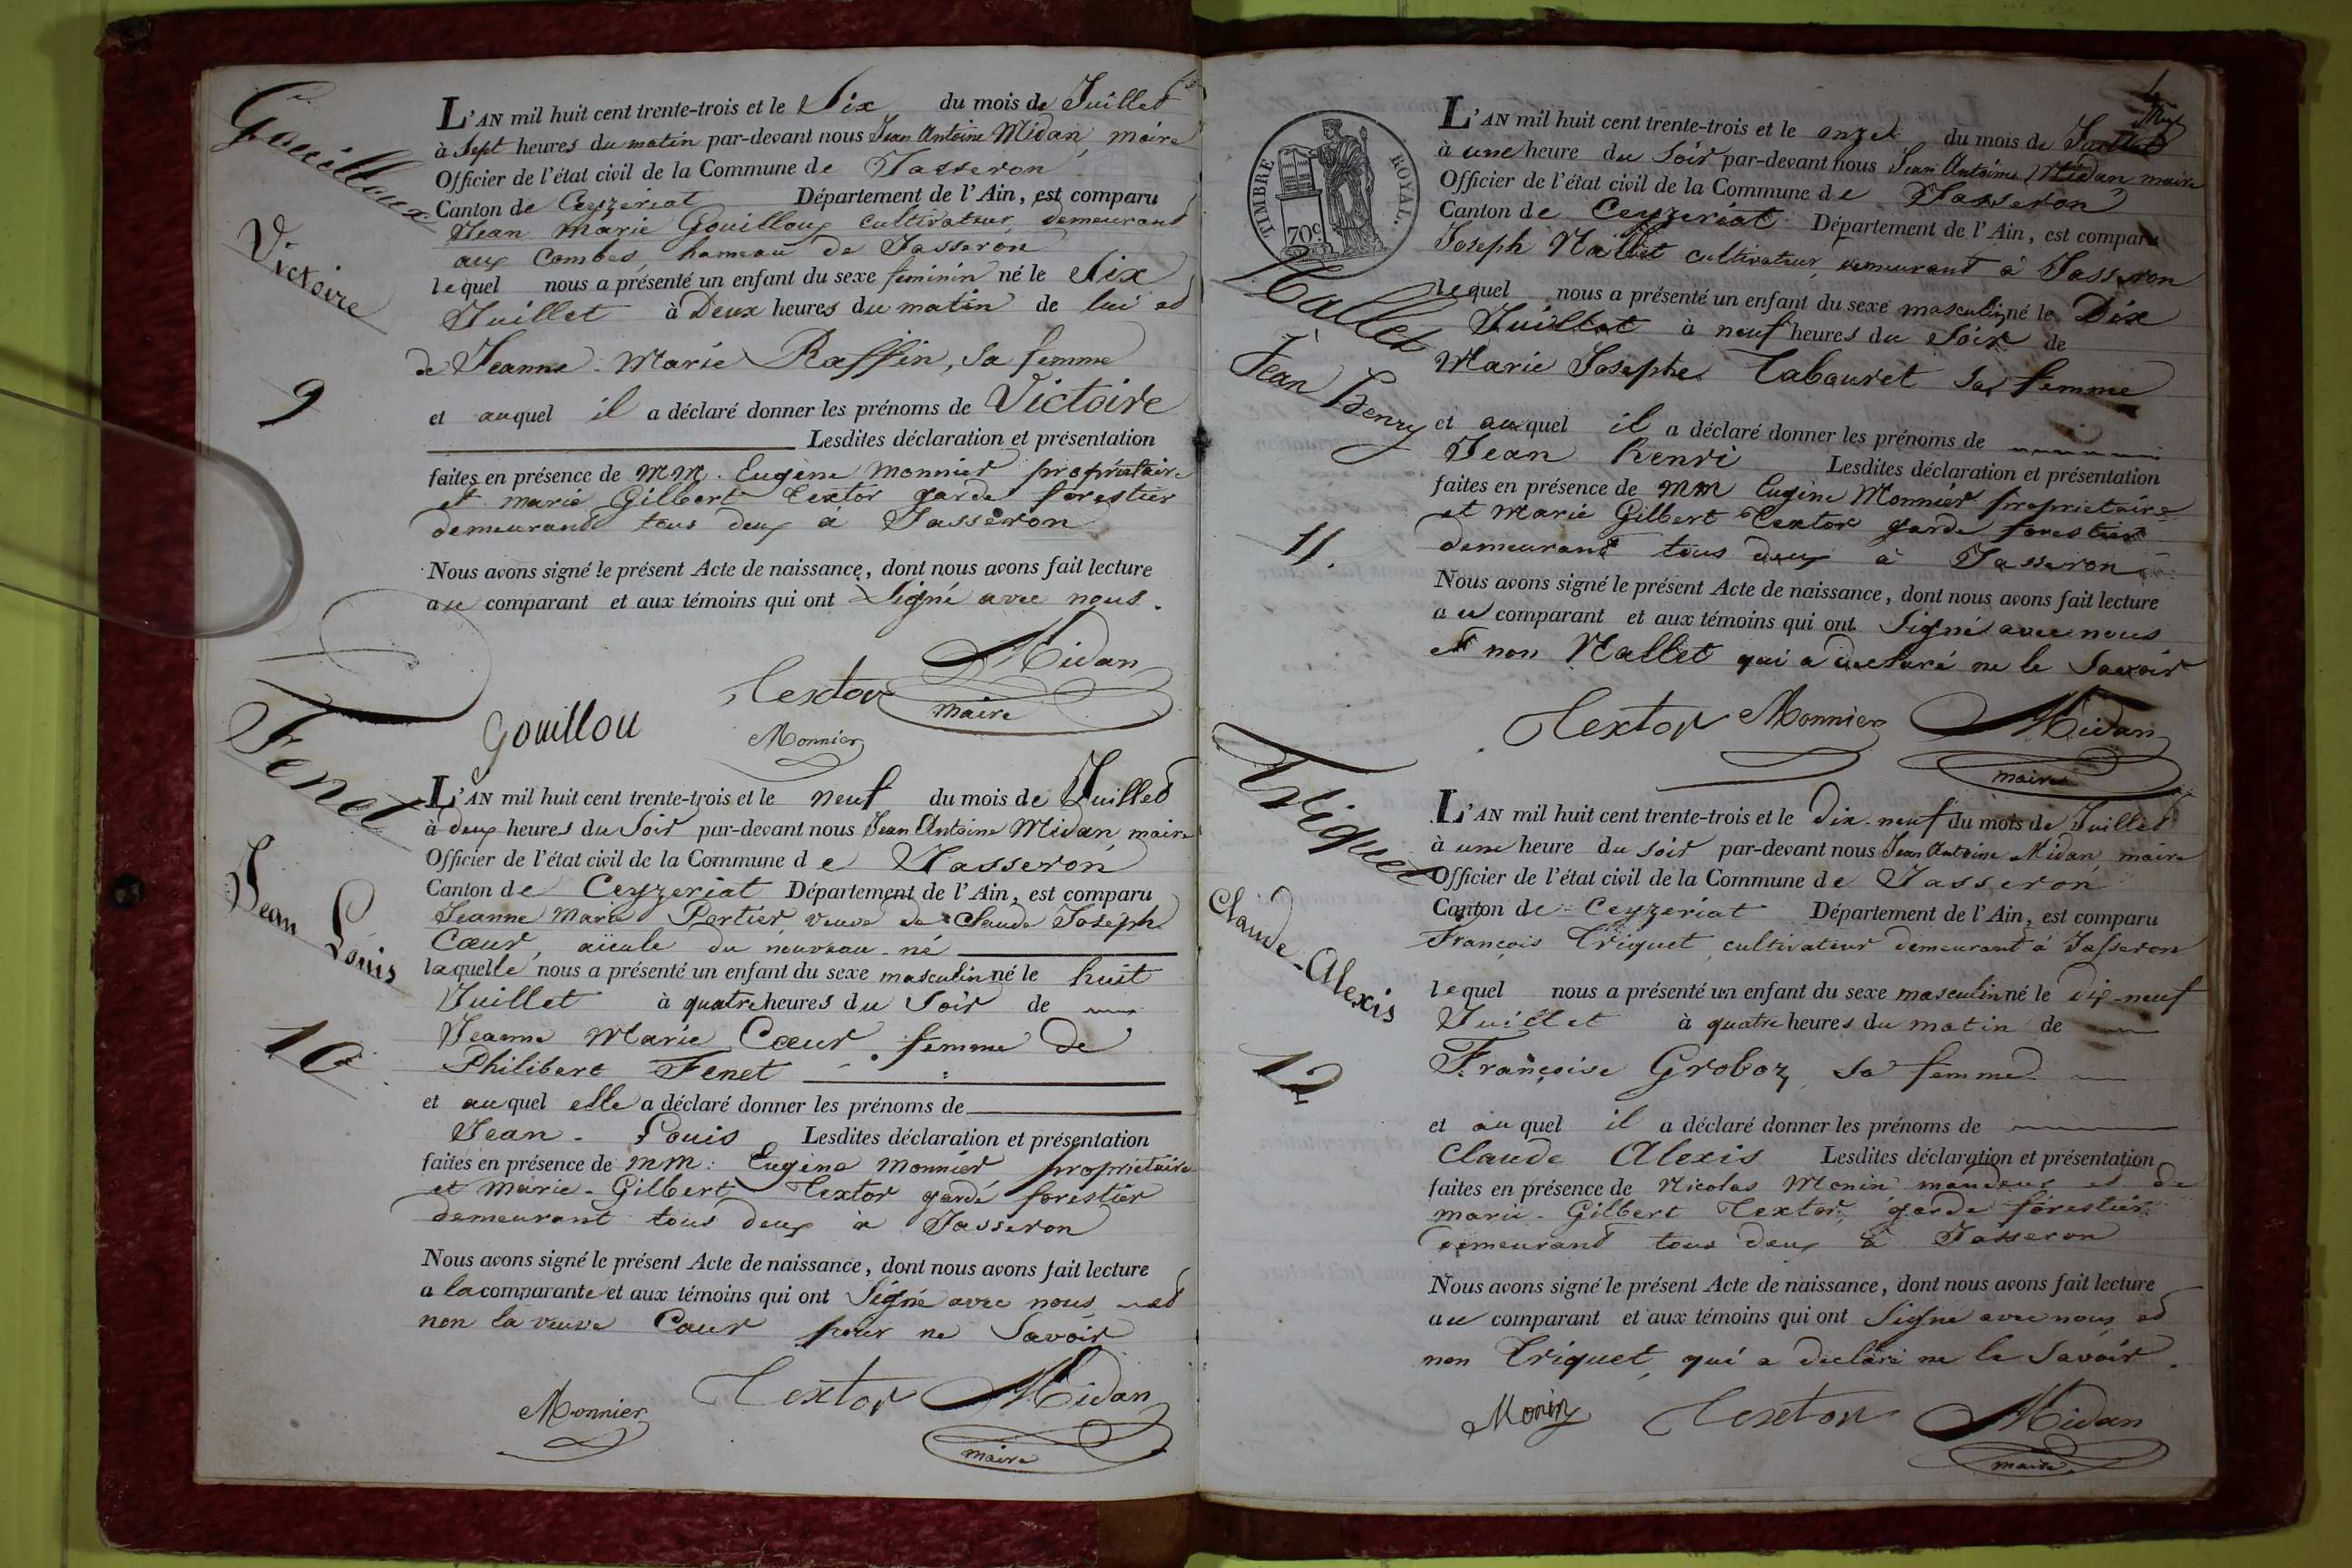 Gouilloux
Victoire
9
L'AN mil huit cent trente-trois et le Six du mois de Juillet
à Sept heures du matin par-devant nous Jean Antoine Midan, maire
Officier de l'état civil de la Commune de Jasseron
Canton de Ceyzeriat Département de l'Ain, est comparu
Jean Marie Gouilloux cultivateur, demeurant
aux Combes, hameau de Jasseron
lequel nous a présenté un enfant du sexe feminin né le Six
Juillet à Deux heures du matin de lui et
de Jeanne-Marie Raffin, sa femme
et auquel il a déclaré donner les prénoms de Victoire
Lesdites déclaration et présentation
faites en présence de MM. Eugène Monnier propriétaire
et marie Gilbert Textor garde forestier
demeurant tous deux à Jasseron
Nous avons signé le présent Acte de naissance, dont nous avons fait lecture
au comparant et aux témoins qui ont Signé avec nous.
Midan
Textor
maire
Gouillou
Monnier
Fenet
Jean Louis
10
L'AN mil huit cent trente-trois et le neuf du mois de Juillet
à deux heures du Soir par-devant nous Jean Antoine Midan, maire
Officier de l'état civil de la Commune de Jasseron
Canton de Ceyzeriat Département de l'Ain, est comparu
Jeanne Marie Portier, veuve de Claude Joseph
Cœur, aïeule du nouveau-né
laquelle nous a présenté un enfant du sexe masculin né le huit
Juillet à quatre heures du Soir de
Jeanne Marie Cœur femme de
Philibert Fenet
et auquel elle a déclaré donner les prénoms de
Jean-Louis Lesdites déclaration et présentation
faites en présence de MM. Eugène Monnier propriétaire
et Marie-Gilbert Textor garde forestier
demeurant tous deux à Jasseron
Nous avons signé le présent Acte de naissance, dont nous avons fait lecture
a la comparante et aux témoins qui ont Signé avec nous et
non la veuve Cœur pour ne Savoir
Monnier Textor Midan
maire
TIMBRE ROYAL
70c
Nallet
Jean Henry
11.
L'AN mil huit cent trente-trois et le onze du mois de Juillet
à une heure du Soir par-devant nous Jean Antoine Midan maire
Officier de l'état civil de la Commune de Jasseron
Canton de Ceyzeriat Département de l'Ain, est comparu
Joseph Nallet cultivateur, demeurant à Jasseron
lequel nous a présenté un enfant du sexe masculin né le Dix
Juillet à neuf heures du Soir de
Marie Josephe Tabouret sa femme
et auquel il a déclaré donner les prénoms de
Jean henri Lesdites déclaration et présentation
faites en présence de MM Eugène Monnier propriétaire
et Marie Gilbert Textor garde forestier
demeurant tous deux à Jasseron
Nous avons signé le présent Acte de naissance, dont nous avons fait lecture
au comparant et aux témoins qui ont Signé avec nous
et non Nallet qui a declaré ne le Savoir
Textor Monnier Midan
maire
Triquet
Claude-Alexis
12
L'AN mil huit cent trente-trois et le Dix-neuf du mois de Juillet
à une heure du soir par-devant nous Jean Antoine Midan, maire
Officier de l'état civil de la Commune de Jasseron
Canton de Ceyzeriat Département de l'Ain, est comparu
François Triquet, cultivateur demeurant à Jasseron
lequel nous a présenté un enfant du sexe masculin né le dix-neuf
Juillet à quatre heures du matin de
Françoise Groboz, sa femme
et auquel il a déclaré donner les prénoms de
Claude Alexis Lesdites déclaration et présentation
faites en présence de Nicolas Monin et de
marie-Gilbert Textor, garde forestier
demeurant tous deux à Jasseron
Nous avons signé le présent Acte de naissance, dont nous avons fait lecture
au comparant et aux témoins qui ont Signé avec nous, et
non Triquet, qui a declaré ne le Savoir.
Monin Textor Midan
maire